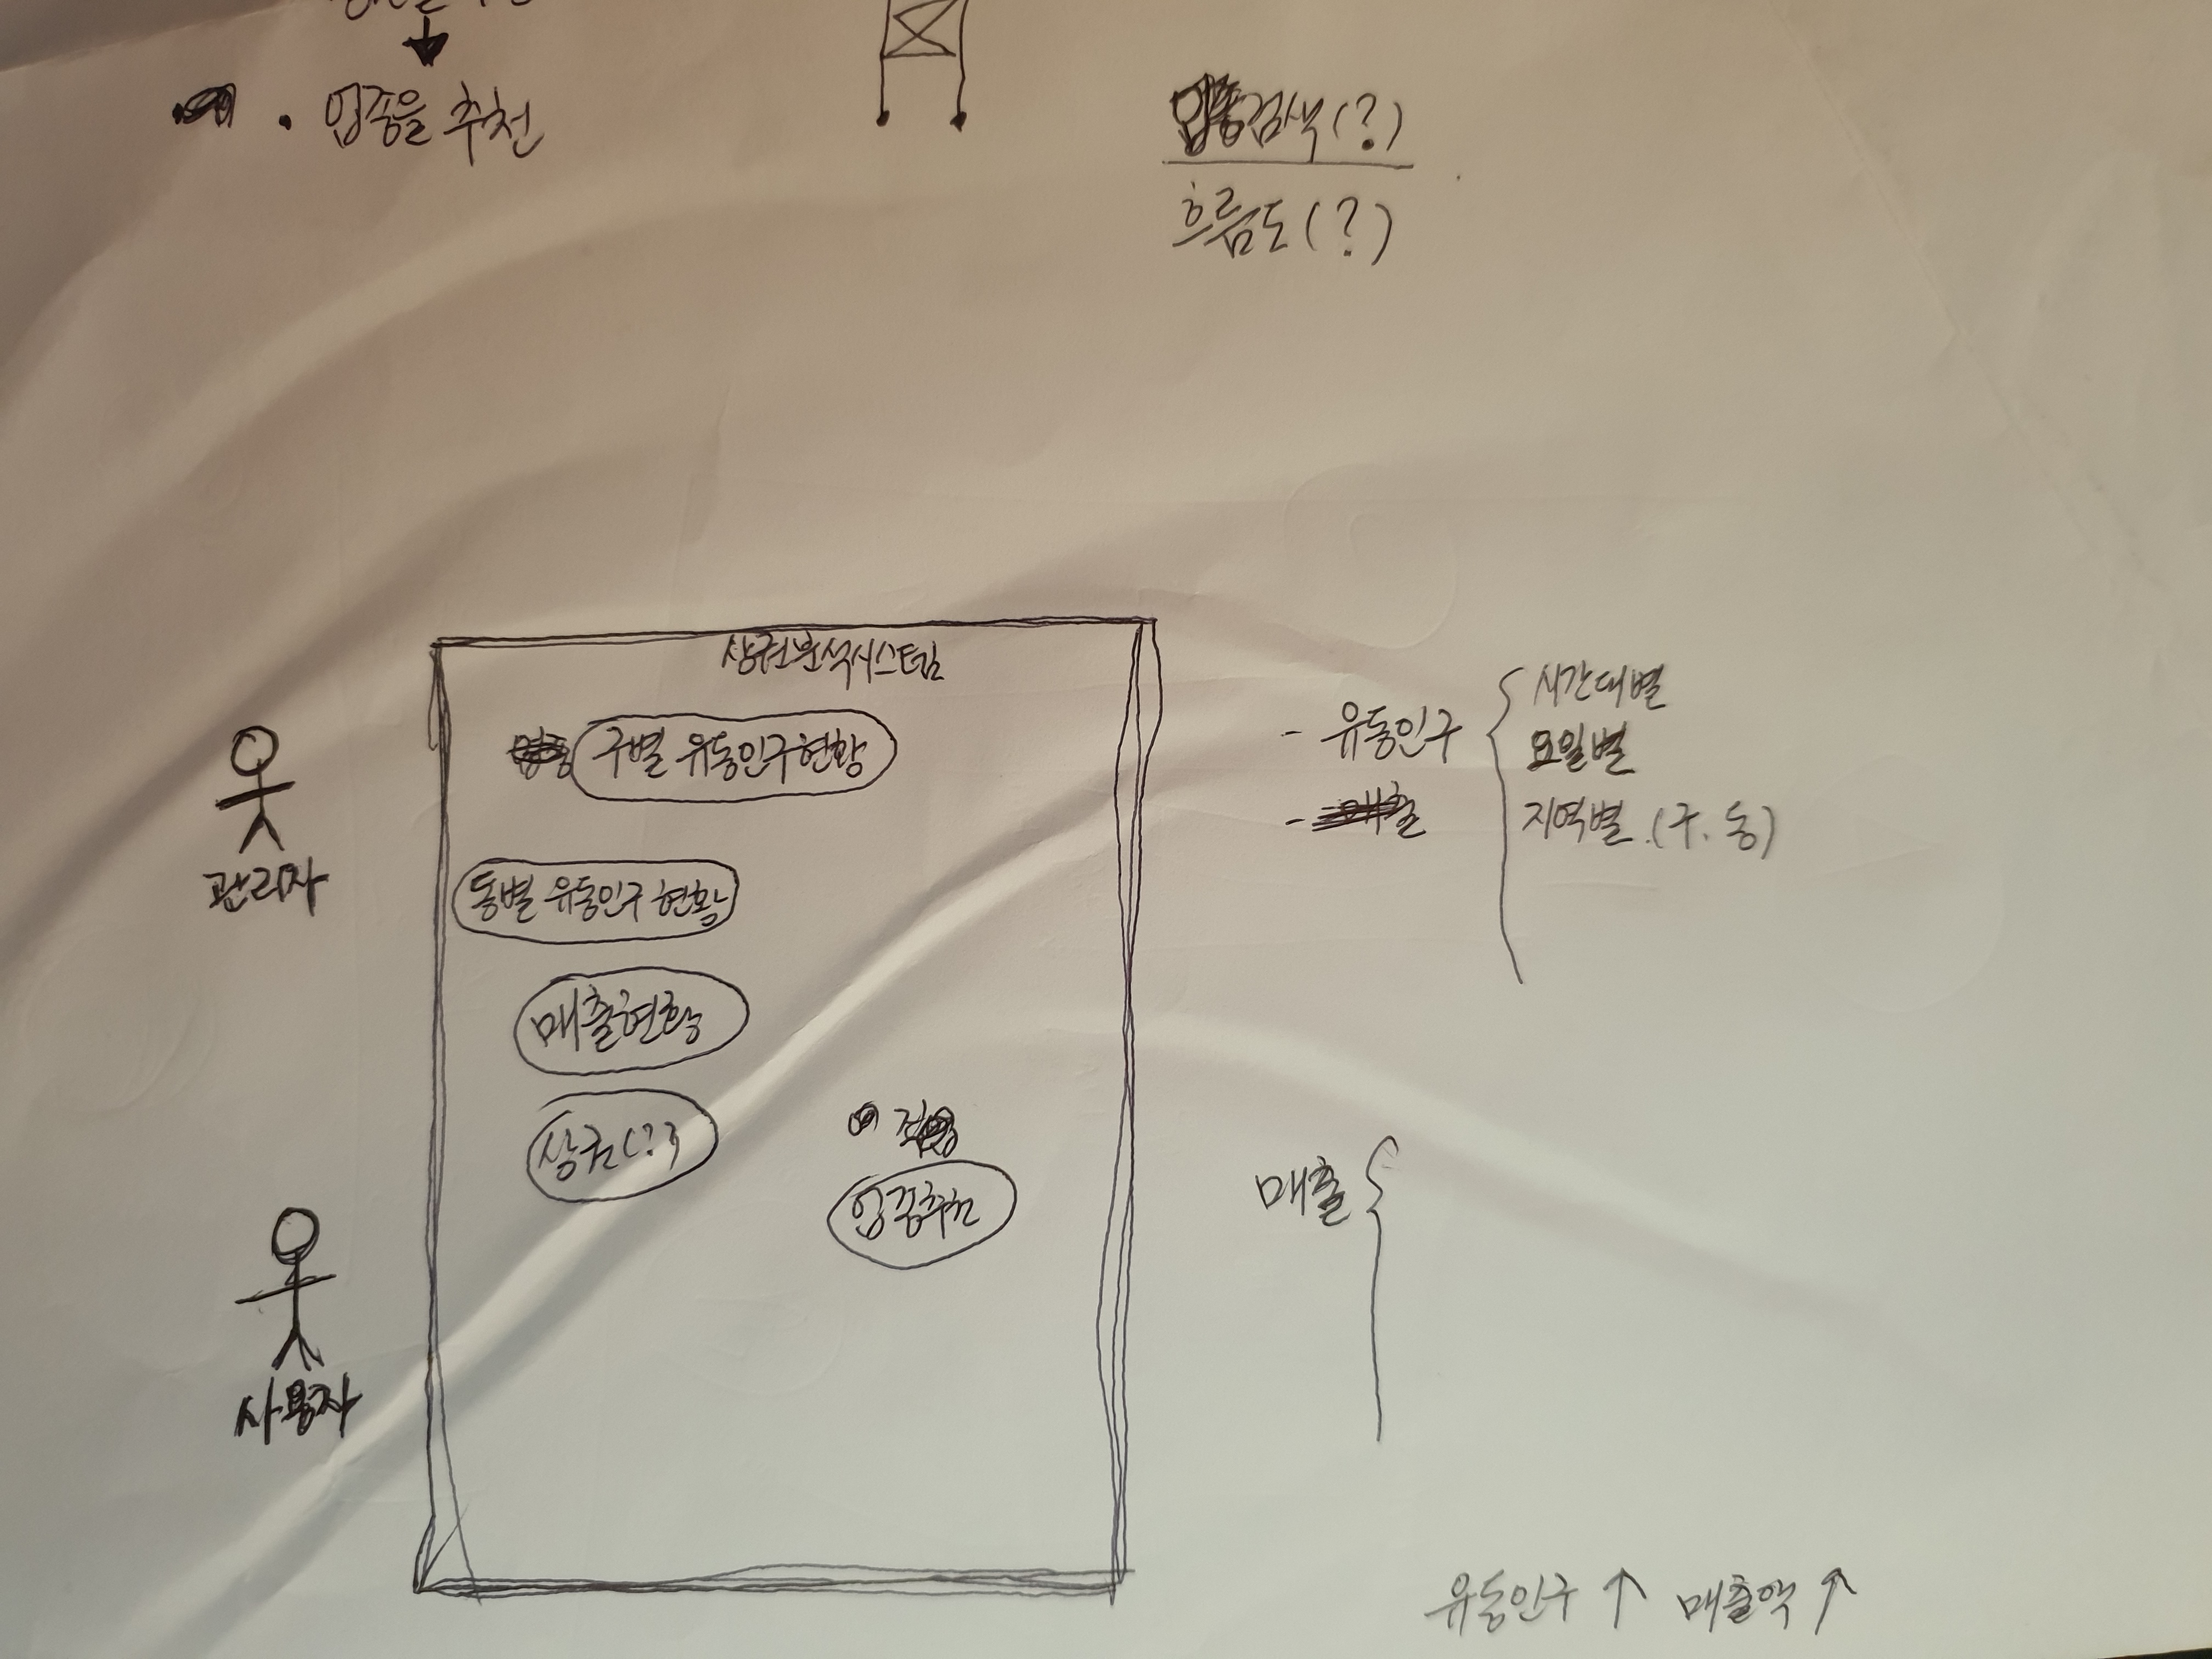 . 업종을 추천
검색(?)
흐름도(?)
상권분석시스템
구별 유동인구현황
동별 유동인구 현황
매출현황
상권(?)
업종추천
관리자
사용자
- 유동인구 {
시간대별
요일별
지역별.(구.동)
- 매출
매출 {
유동인구 ↑ 매출액 ↑